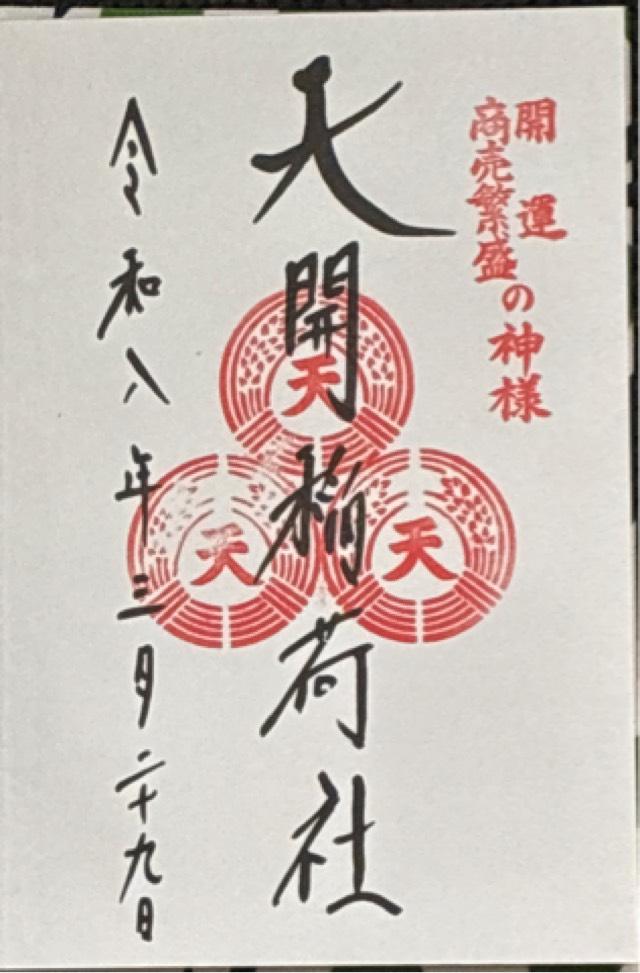 開運
商売繁盛
の神様
天開稲荷社
天
天
天
令和八年三月二十九日